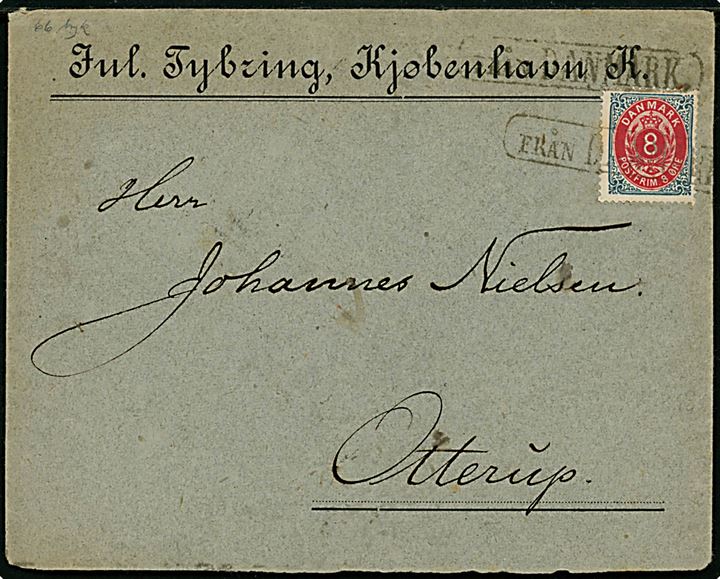 66 byk
Jul. Tybring, Kjøbenhavn K.
DANMARK
DANMARK
8
POSTFRIM. 8 ØRE
FRÅN
Herr
Johannes Nielsen.
Otterup.